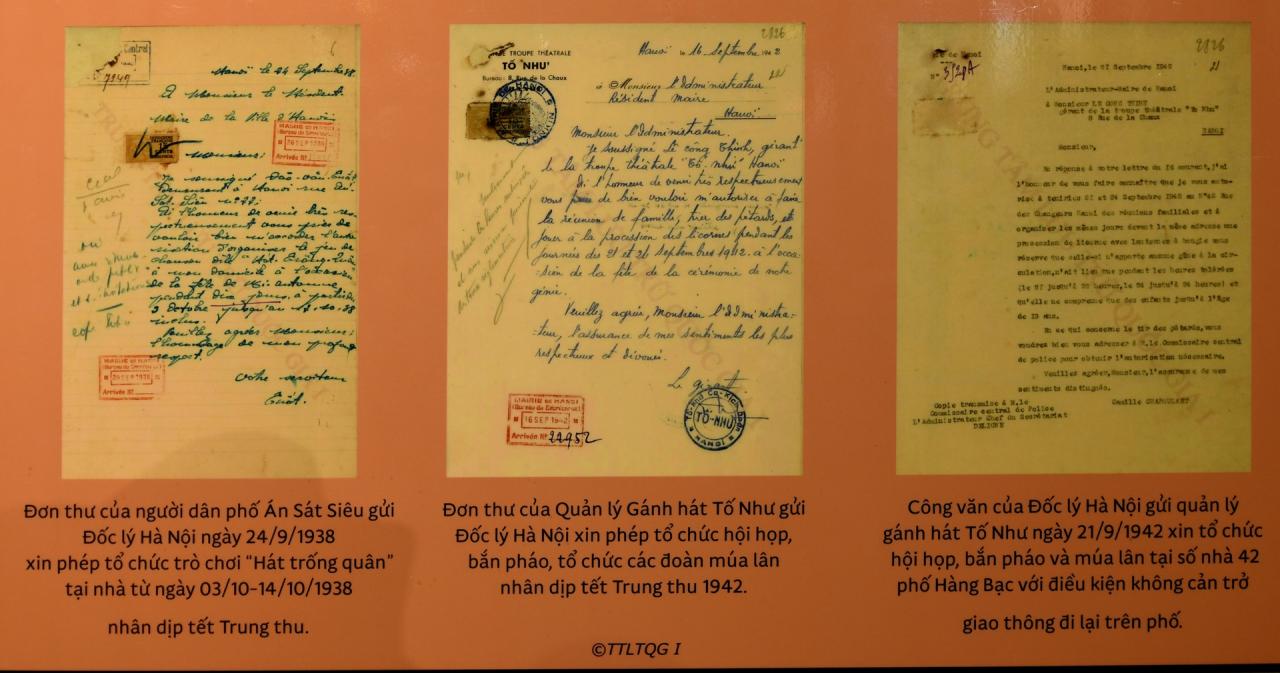 Hanoi le 24 Septembre 38
A Monsieur le Résident
Maire de la Ville d'Hanoi
MAIRIE DE HANOI
Monsieur:
Je soussigné Đào văn Quát
à Hanoi rue
Sat Siêu nº
l'honneur de venir très res-
pectueusement vous prier de
vouloir bien m'accorder l'auto-
risation d'organiser le jeu de
chanson dite "Hát Trống Quân"
à mon domicile à l'occasion
de la fête de Mi-automne
pendant dix jours, à partir du
3 Octobre jusqu'au
inclus.
Veuillez agréer Monsieur:
l'hommage de mon profond
respect.
Votre serviteur
Quát.
MAIRIE DE HANOI
Arrivée Nº
TROUPE THÉATRALE
TỐ "NHƯ"
Bureau: 8, Rue de la Chaux
Hanoi le 16 Septembre 1942
2826
à Monsieur l'Administrateur
Résident Maire
Hanoi
Monsieur l'Administrateur.
Je soussigné Lê công Thịnh, gérant
de la troupe théâtrale "Tố-Như" Hanoi
Ai l'honneur de venir très respectueusement
vous prier de bien vouloir m'autoriser à faire
la réunion de famille, tirer des pétards, et
jouer à la procession des licornes pendant les
journées des 21 et 24 Septembre 1942 à l'occa-
sion de la fête de la cérémonie de notre
génie.
Veuillez agréer, Monsieur l'Administra-
teur, l'assurance de mes sentiments les plus
respectueux et dévoués.
Le gérant.
MAIRIE DE HANOI
(Bureau du Secrétariat)
16 SEP 1942
Arrivée Nº 22952
TỐ-NHƯ
HANOI
2826
21
Hanoi, le 21 Septembre 1942
L'Administrateur-Maire de Hanoi
à Monsieur LE CONG THINH
gérant de la troupe théâtrale "To Nhu"
8 Rue de la Chaux
HANOI
Monsieur,
En réponse à votre lettre du 16 courant, j'ai
l'honneur de vous faire connaître que je vous auto-
rise à tenir les 21 et 24 Septembre 1942 au Nº42 Rue
des Changeurs Hanoi des réunions familiales et à
organiser les mêmes jours devant la même adresse une
procession de licorne avec lanternes à bougie sous
réserve que celle-ci n'apporte aucune gêne à la cir-
culation, n'ait lieu que pendant les heures tolérées
(le 21 jusqu'à 22 heures, le 24 jusqu'à 24 heures) et
qu'elle ne comprenne que des enfants jusqu'à l'âge
de 15 ans.
En ce qui concerne le tir des pétards, vous
voudrez bien vous adresser à M. le Commissaire central
de police pour obtenir l'autorisation nécessaire.
Veuillez agréer, Monsieur, l'assurance de mes
sentiments distingués.
Camille CHAPOULART
Copie transmise à M. le
Commissaire central de Police
L'Administrateur Chef du Secrétariat
DELIGNE
Đơn thư của người dân phố Án Sát Siêu gửi
Đốc lý Hà Nội ngày 24/9/1938
xin phép tổ chức trò chơi "Hát trống quân"
tại nhà từ ngày 03/10-14/10/1938
nhân dịp tết Trung thu.
Đơn thư của Quản lý Gánh hát Tố Như gửi
Đốc lý Hà Nội xin phép tổ chức hội họp,
bắn pháo, tổ chức các đoàn múa lân
nhân dịp tết Trung thu 1942.
Công văn của Đốc lý Hà Nội gửi quản lý
gánh hát Tố Như ngày 21/9/1942 xin tổ chức
hội họp, bắn pháo và múa lân tại số nhà 42
phố Hàng Bạc với điều kiện không cản trở
giao thông đi lại trên phố.
©TTLTQG I